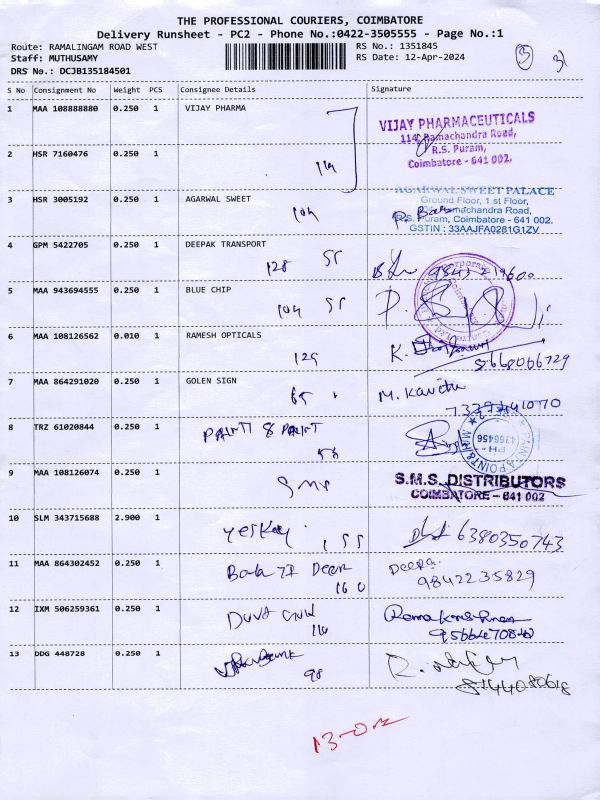 THE PROFESSIONAL COURIERS, COIMBATORE
Delivery Runsheet - PC2 - Phone No.:0422-3505555 - Page No.:1
Route: RAMALINGAM ROAD WEST
RS No.: 1351845
Staff: MUTHUSAMY
RS Date: 12-Apr-2024
DRS No.: DCJB135184501
3
31
S No Consignment No Weight PCS Consignee Details Signature
1 MAA 108888880 0.250 1 VIJAY PHARMA
VIJAY PHARMACEUTICALS
114, Ramachandra Road,
R.S. Puram,
Coimbatore - 641 002.
2 HSR 7160476 0.250 1
119
3 HSR 3005192 0.250 1 AGARWAL SWEET
104
AGARWAL SWEET PALACE
Ground Floor, 1 st Floor,
Ramachandra Road,
R.S. Puram, Coimbatore - 641 002.
GSTIN : 33AAJFA0281G1ZV
4 GPM 5422705 0.250 1 DEEPAK TRANSPORT
128 55
5 MAA 943694555 0.250 1 BLUE CHIP
104 55
6 MAA 108126562 0.010 1 RAMESH OPTICALS
129
8668066729
7 MAA 864291020 0.250 1 GOLEN SIGN
M. Kavitha
8 TRZ 61020844 0.250 1 PAINT & PAINT
PH - 4366456
9 MAA 108126074 0.250 1 SMS
S.M.S. DISTRIBUTORS
COIMBATORE - 641 002
10 SLM 343715688 2.900 1 Yeskay 155
6380350743
11 MAA 864302452 0.250 1
160
Deepa.
9842235829
12 IXM 506259361 0.250 1
110
Ramakrishnan
13 DDG 448728 0.250 1
98
8144080618